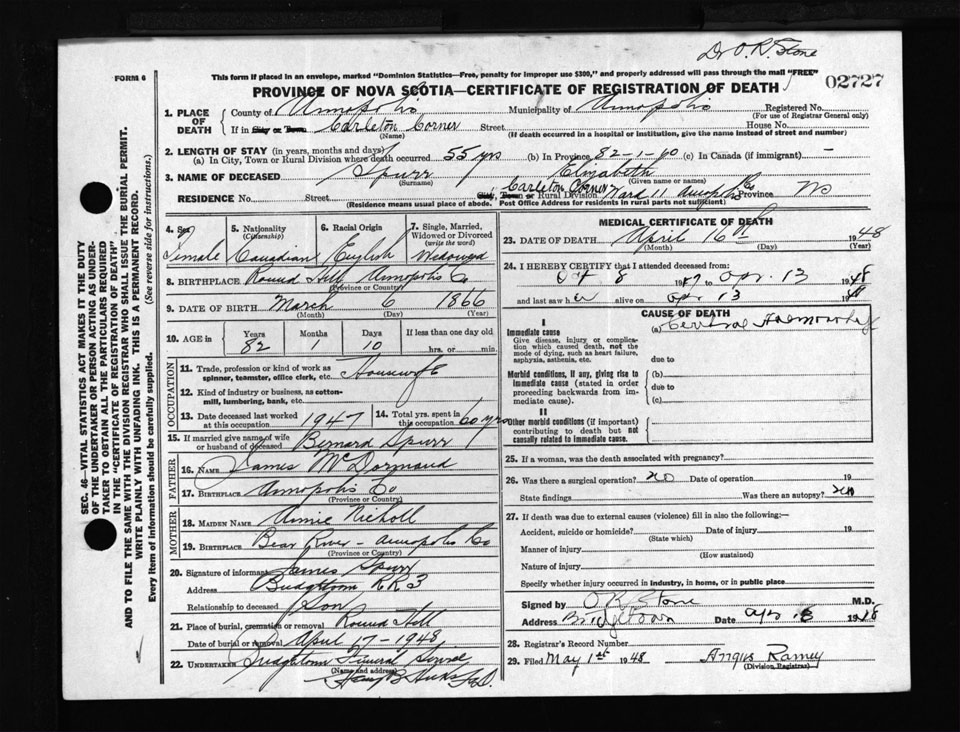 Dr O. R. Stone
FORM 6
This form if placed in an envelope, marked "Dominion Statistics—Free, penalty for improper use $300," and properly addressed will pass through the mail "FREE"
02727
PROVINCE OF NOVA SCOTIA—CERTIFICATE OF REGISTRATION OF DEATH
1. PLACE OF DEATH County of Annapolis Municipality of Annapolis Registered No. (For use of Registrar General only)
If in City or Town Carleton Corner Street House No.
(Name) (If death occurred in a hospital or institution, give the name instead of street and number)
2. LENGTH OF STAY (in years, months and days)
(a) In City, Town or Rural Division where death occurred 55 yrs (b) In Province 82-1-10 (c) In Canada (if immigrant) —
3. NAME OF DECEASED Spurr Elizabeth
(Surname) (Given name or names)
RESIDENCE No. Street City, Town or Rural Division Carleton Corner Ward 11 Annapolis Co Province NS
(Residence means usual place of abode. Post Office Address for residents in rural parts not sufficient)
4. Sex 5. Nationality (Citizenship) 6. Racial Origin 7. Single, Married, Widowed or Divorced (write the word)
Female Canadian English Widowed
8. BIRTHPLACE Round Hill Annapolis Co
(Province or Country)
9. DATE OF BIRTH March 6 1866
(Month) (Day) (Year)
10. AGE in Years Months Days If less than one day old
82 1 10 hrs. or min.
OCCUPATION
11. Trade, profession or kind of work as spinner, teamster, office clerk, etc. Housewife
12. Kind of industry or business, as cotton-mill, lumbering, bank, etc.
13. Date deceased last worked at this occupation 1947 14. Total yrs. spent in this occupation 60 yrs
15. If married give name of wife or husband of deceased Bernard Spurr
FATHER
16. NAME James McDormand
17. BIRTHPLACE Annapolis Co
(Province or Country)
MOTHER
18. MAIDEN NAME Annie Nicholl
19. BIRTHPLACE Bear River - Annapolis Co
(Province or Country)
20. Signature of informant James Spurr
Address Bridgetown RR3
Relationship to deceased Son
21. Place of burial, cremation or removal Round Hill
Date of burial or removal April 17-1948
22. UNDERTAKER Bridgetown Funeral
(Name and address)
MEDICAL CERTIFICATE OF DEATH
23. DATE OF DEATH April 16th 1948
(Month) (Day) (Year)
24. I HEREBY CERTIFY that I attended deceased from:
Oct 8 1947 to Apr. 13 1948
and last saw her alive on Apr 13 1948
CAUSE OF DEATH
I
Immediate cause (a) Cerebral Haemorrhage
Give disease, injury or complication which caused death, not the mode of dying, such as heart failure, asphyxia, asthenia, etc.
due to
Morbid conditions, if any, giving rise to immediate cause (stated in order proceeding backwards from immediate cause).
(b)
due to
(c)
II
Other morbid conditions (if important) contributing to death but not causally related to immediate cause.
25. If a woman, was the death associated with pregnancy?
26. Was there a surgical operation? no Date of operation 19
State findings Was there an autopsy? no
27. If death was due to external causes (violence) fill in also the following:—
Accident, suicide or homicide? Date of injury 19
(State which)
Manner of injury
(How sustained)
Nature of injury
Specify whether injury occurred in industry, in home, or in public place
Signed by O R Stone M.D.
Address Bridgetown Date Apr 1948
28. Registrar's Record No.
29. Filed May 1st 1948 Angus Ramey
(Division Registrar)
SEC. 46—VITAL STATISTICS ACT MAKES IT THE DUTY
OF THE UNDERTAKER OR PERSON ACTING AS UNDER-
TAKER TO OBTAIN ALL THE PARTICULARS REQUIRED
IN THE "CERTIFICATE OF REGISTRATION OF DEATH"
AND TO FILE THE SAME WITH THE DIVISION REGISTRAR WHO SHALL ISSUE THE BURIAL PERMIT.
WRITE PLAINLY WITH UNFADING INK. THIS IS A PERMANENT RECORD.
Every item of information should be carefully supplied. (See reverse side for instructions.)